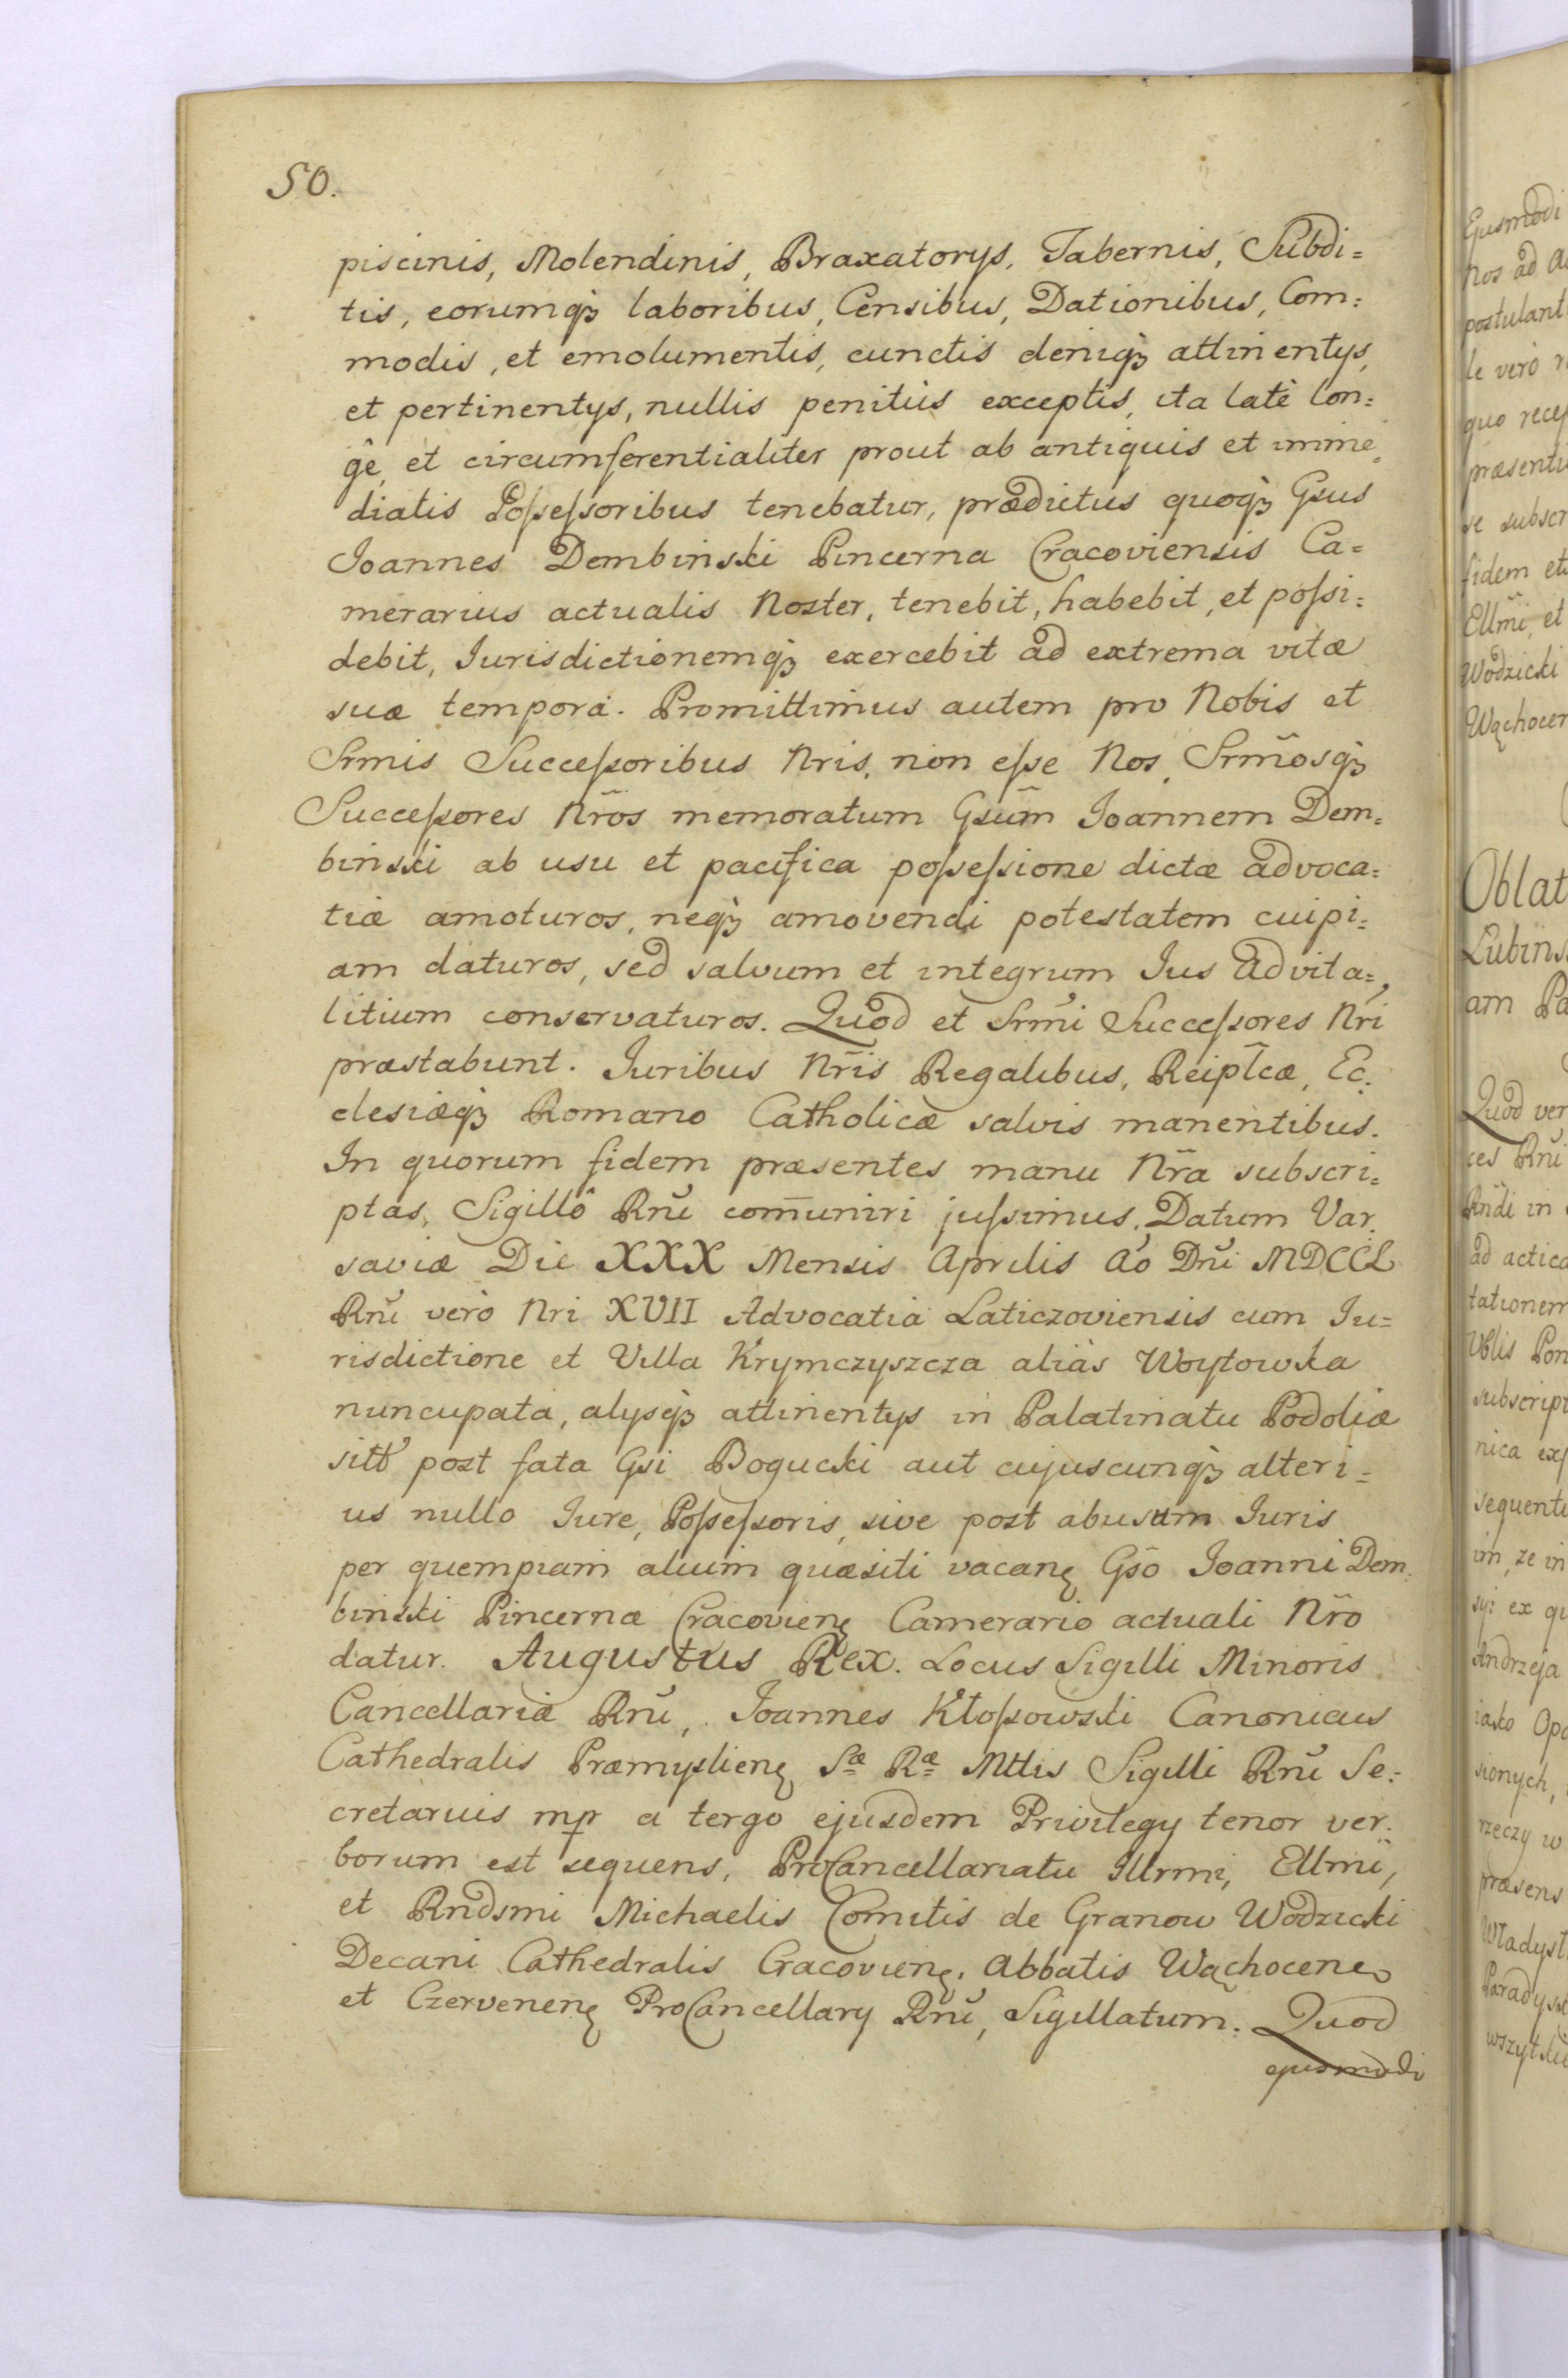 50.
piscinis, Molendinis, Braxatorÿs, Tabernis, Subdi=
tis, eorumqꝫ laboribus, Censibus, Dationibus, Com=
modis, et emolumentis, cunctis deniqꝫ attinentÿs,
et pertinentÿs, nullis penitùs exceptis, ita latè lon=
gê, et circumferentialiter prout ab antiquis et imme=
diatis Poſseſsoribus tenebatur, prædictus quoqꝫ Gsus
Joannes Dembinski Pincerna Cracoviensis Ca=
merarius actualis Noster, tenebit, habebit, et poſsi=
debit, Iurisdictionemqꝫ exercebit ad extrema vitæ
suæ tempora. Promittimus autem pro Nobis et
Srmis Succeſsoribus Nris, non eſse Nos, Srm̃osqꝫ
Succeſsores Nr̃os memoratum Gsum̃ Joannem Dem=
binski ab usu et pacifica poſseſsione dictæ advoca=
tiæ amoturos, neqꝫ amovendi potestatem cuipi=
am daturos, sed salvum et integrum Ius Advita=
litium conservaturos. Quod et Srm̃i Succeſsores Nr̃i
præstabunt. Iuribus Nr̃is Regalibus, Reipl̃cæ, Ec=
clesiæqꝫ Romano Catholicæ salvis manentibus.
In quorum fidem præsentes manu Nr̃a subscri=
ptas, Sigillô Rnĩ com̃uniri juſsimus. Datum Var=
saviæ Die XXX Mensis Aprilis Aõ Dnĩ MDCCL
Rnĩ verò Nri XVII Advocatia Laticzoviensis cum Iu=
risdictione et Villa Krymczyszcza aliàs Woytowska
nuncupata, alÿsqꝫ attinentÿs in Palatinatu Podoliæ
sitt̃ post fata Gsi Bogucki aut cujuscunqꝫ alteri=
us nullo Iure, Poſseſsoris, sive post abusum Iuris
per quempiam alium quæsiti vacanę Gsõ Joanni Dem=
binski Pincernæ Cracovienę Camerario actuali Nr̃o
datur. Augustus Rex. Locus Sigilli Minoris
Cancellariæ Rnĩ, Joannes Kłoſsowski Canonicus
Cathedralis Præmyslienę Sæ Ræ Mttis Sigilli Rnĩ Se=
cretarius mp̃ a tergo ejusdem Privilegÿ tenor ver=
borum est sequens, ProCancellariatu Illrmi, Ellmi,
et Rndsmi Michaelis Comitis de Granow Wodzicki
Decani Cathedralis Cracovienę, Abbatis Wąchocenę
et Czervenenę ProCancellarÿ Rnĩ, Sigillatum. Quod
ejusmodi
Ejusmodi
Nos ad
postulant
le verò
quo
præsenti
se subscr
fidem et
Ellm̃i, et
Wodzicki
Wąchocen
Oblat
Lubins
am Pa
Quod ver
ces Rnĩ
Rndi in
ad actica
tationem
Vblis Pon
subscript
nica
sequenti
im, ze in
ex qu
Andrzeja
iako Opa
sionych,
rzeczy w
præsens
Władysł
Paradys